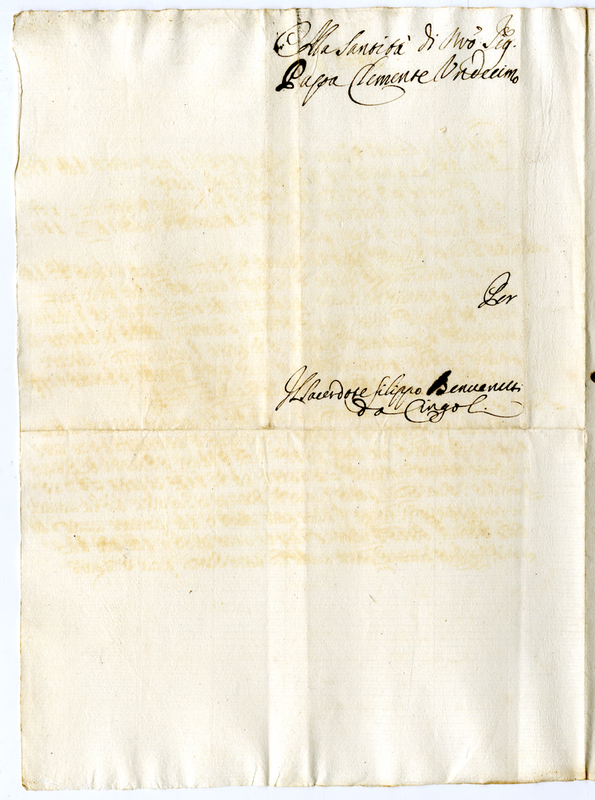 Alla Santità di Nrõ Sig.
Pappa Clemente Undecimo
Per
Il Sacerdote filippo Benvenuti
da Cingoli.